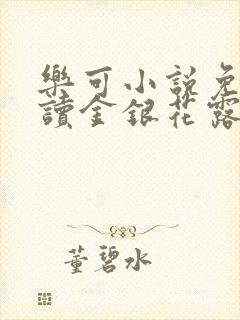 樂可小說免
讀金銀花露
董碧水